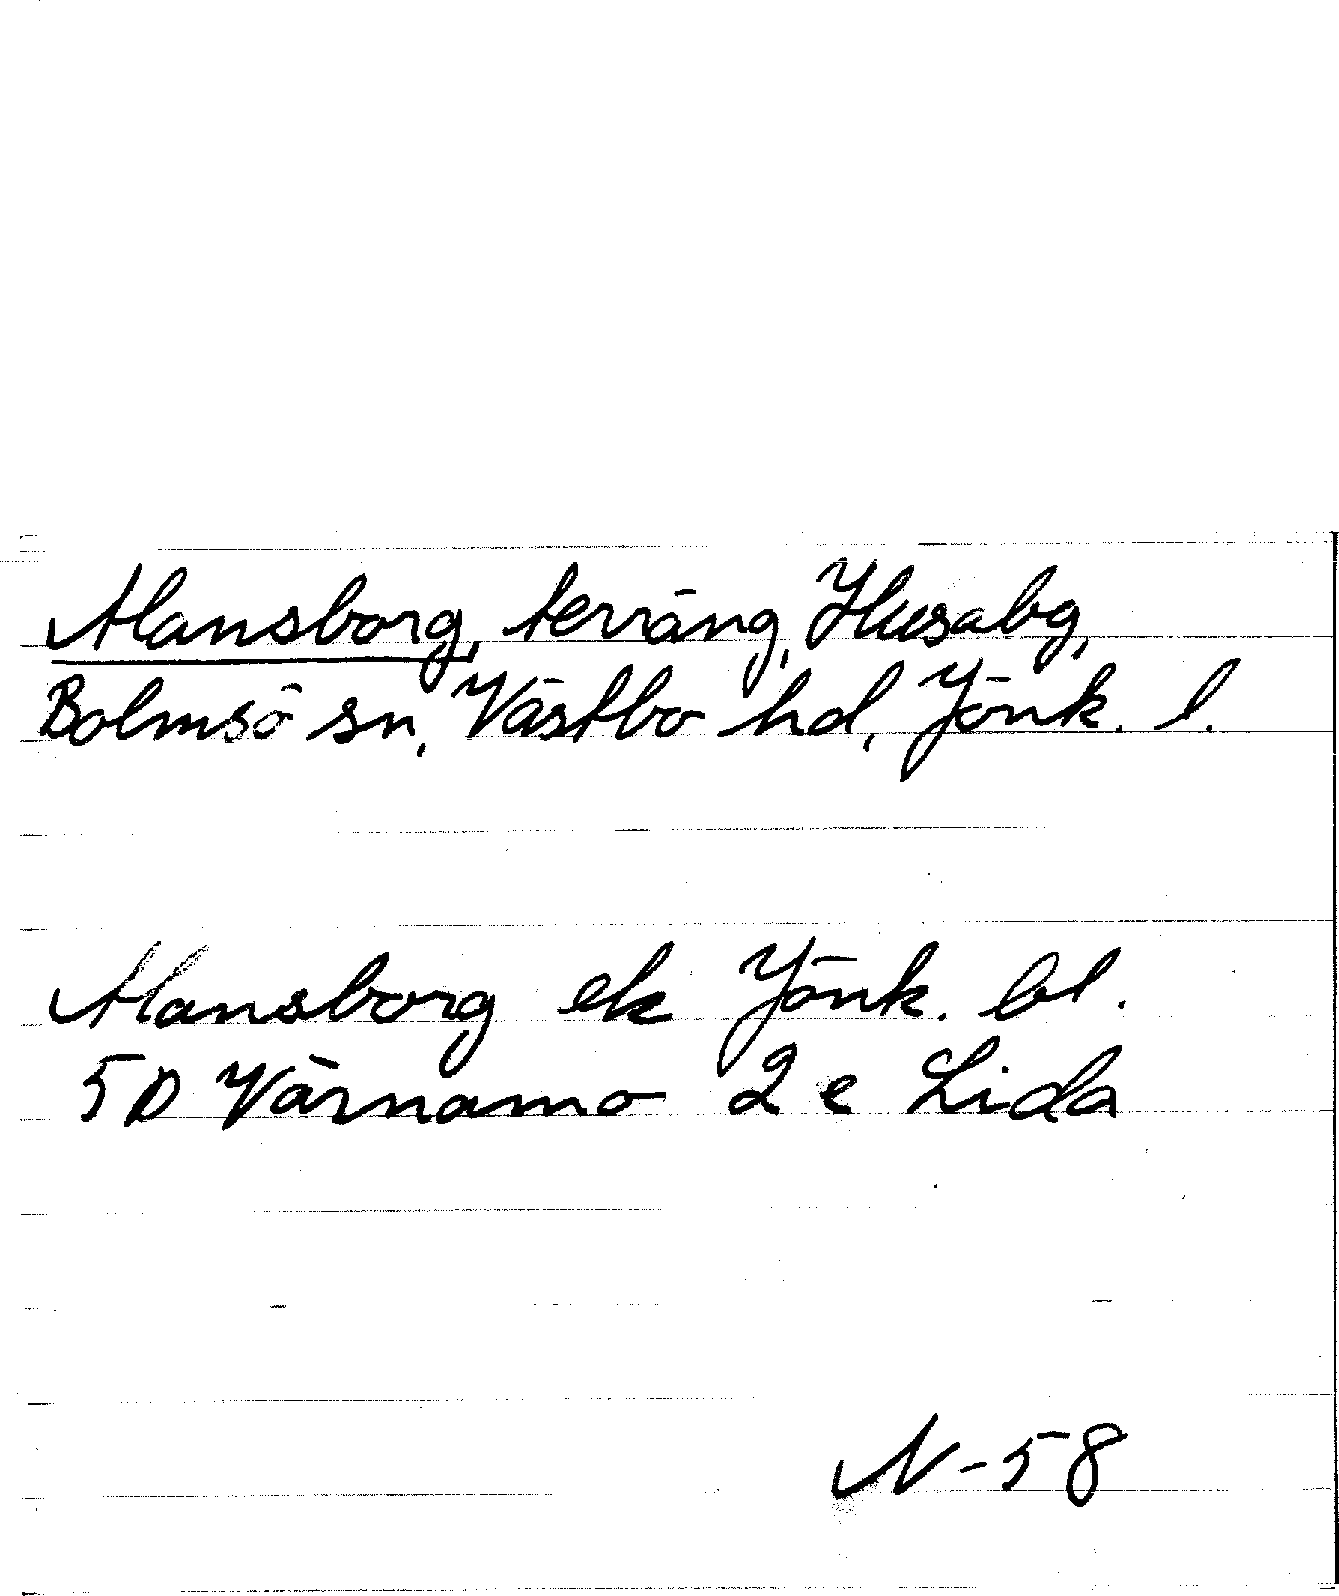 Mansborg, terräng, Husabg,
Bolmsö sn, Västbo hd, Jönk. l.
Mansborg ek Jönk. bl.
5D Värnamo 2 e Lida
N-58